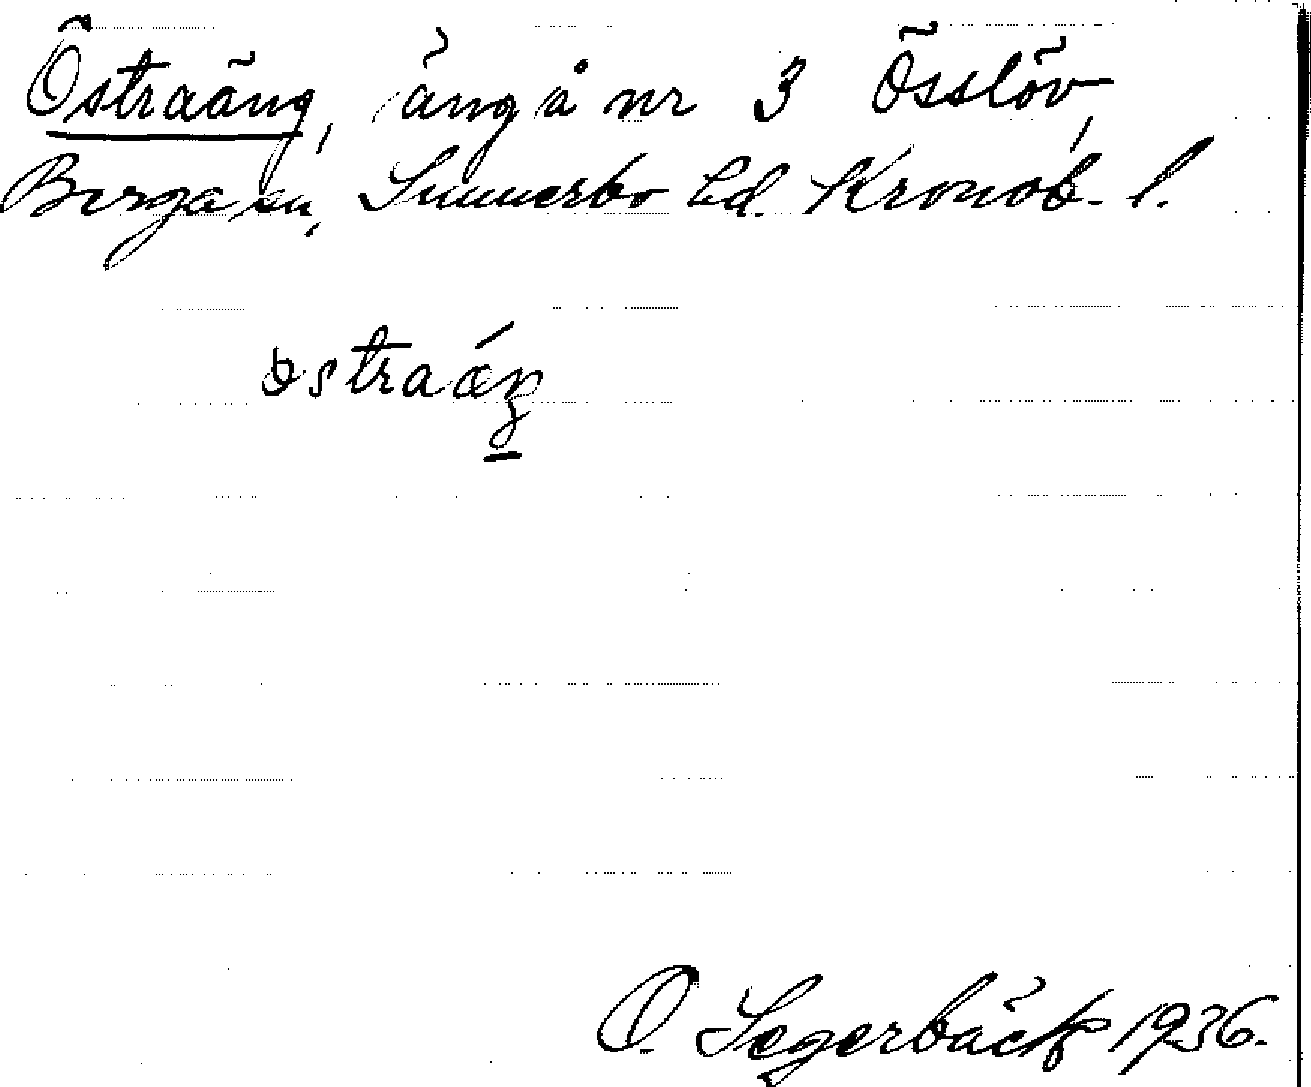 Östraäng, äng å nr 3 Össlöv,
Berga sn, Sunnerbo hd. Kronob. l.
östraäŋ
O. Segerbäck 1936.